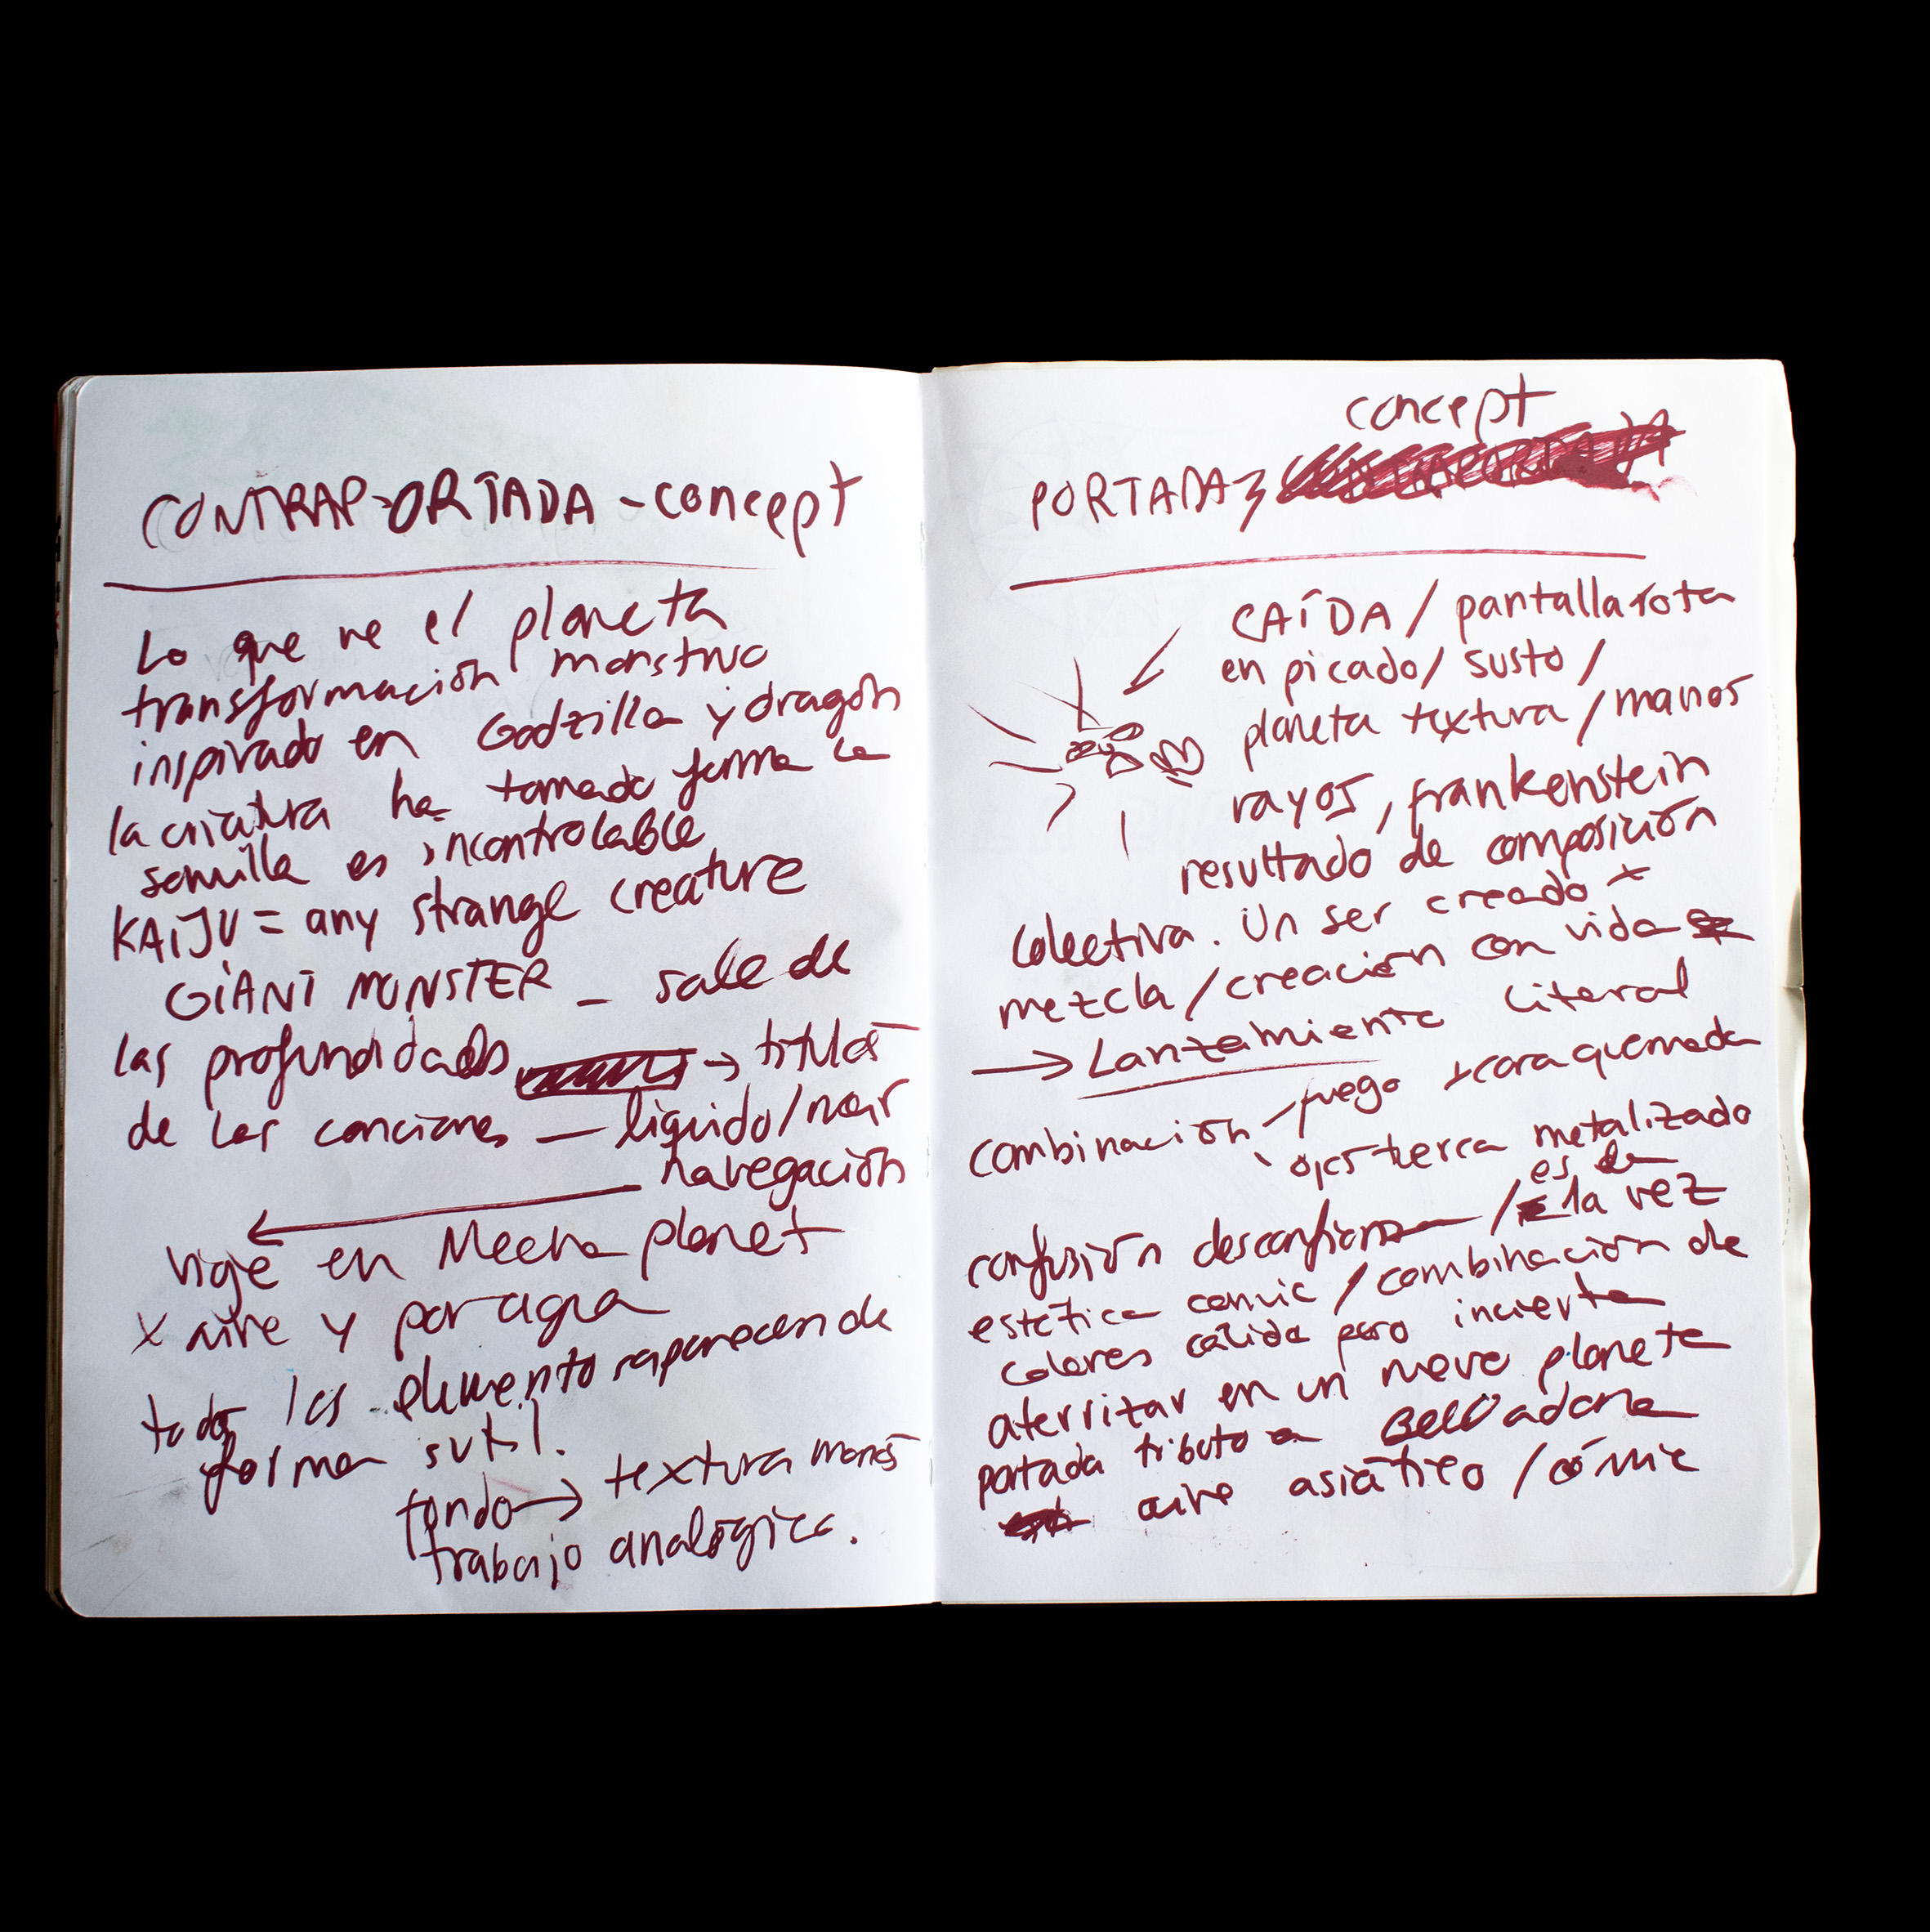 CONTRAPORTADA - concept
Lo que ve el planeta
transformación monstruo
inspirado en Godzilla y dragón
la criatura ha tomado forma la
semilla es incontrolable
KAIJU = any strange creature
GIANT MONSTER - sale de
las profundidades → titulos
de las canciones — liquido/mar
navegación
viaje en Mecha planet
x aire y por agua
todos los elementos reaparecen de
forma sutil.
fondo → textura manos
trabajo analógico.
concept
PORTADA
CAÍDA / pantalla rota
en picado / susto /
planeta textura / manos
rayos, frankenstein
resultado de composición
colectiva. Un ser creado x
mezcla / creación con vida
→ Lanzamiento literal
combinación - fuego cara quemada
ojos tierra metalizado
es de
confusión desconfianza / la vez
estética comic / combinación de
colores cálida pero incierta
aterrizar en un nuevo planeta
portada tributo a Belladona
aire asiático / cómic